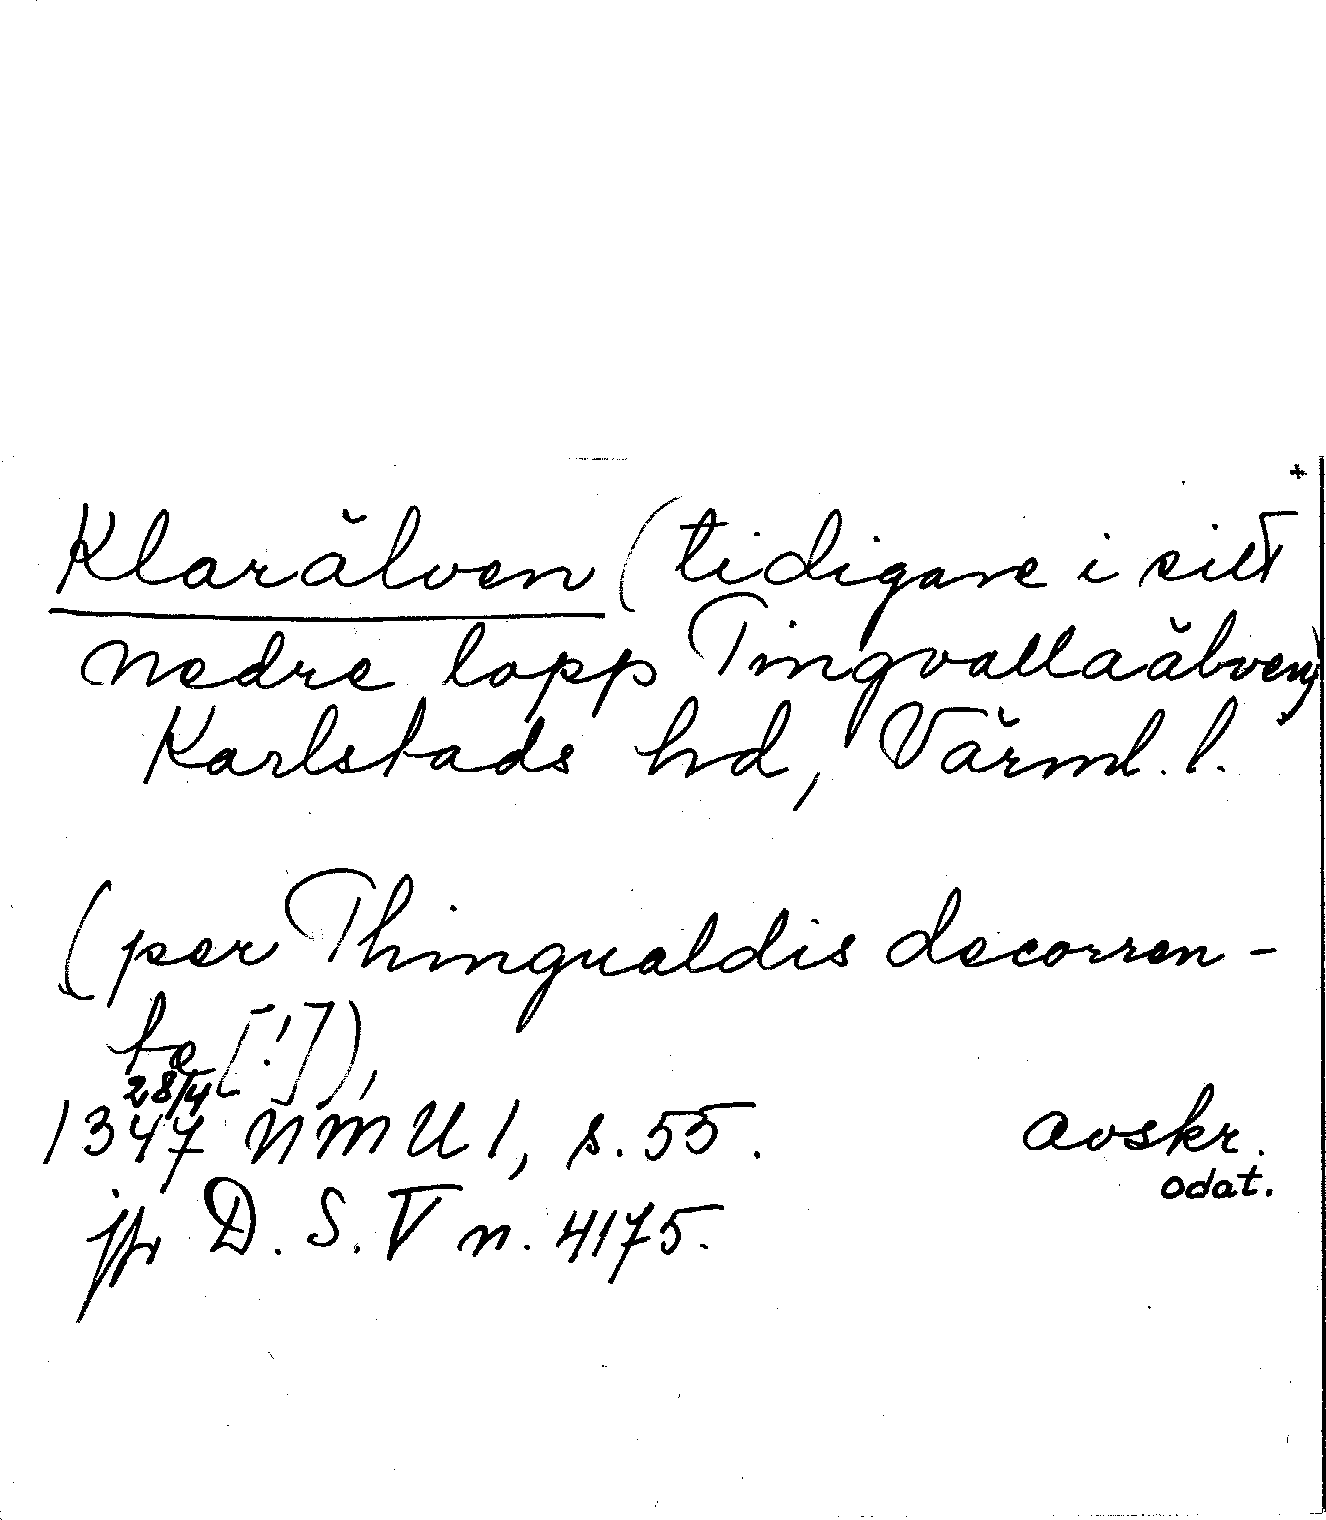 +
Klarälven (tidigare i sitt
nedre lopp Tingvallaälven)
Karlstads hd, Värml. l.
(per Thingualdis decorren-
te [!]),
28/4
1347 NMU 1, s. 55. avskr.
odat.
jfr D. S. V n. 4175.